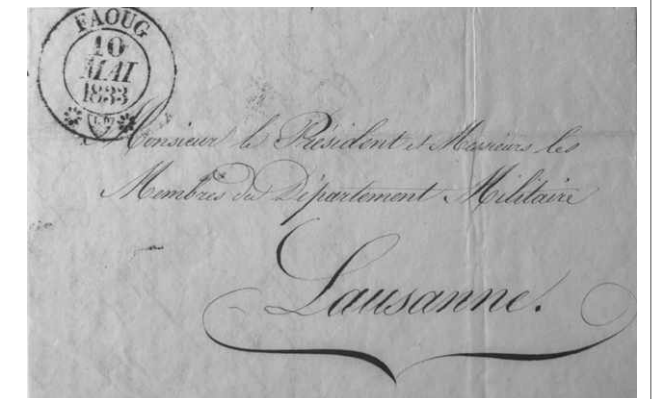 FAOUG
10
MAI
1833
Monsieur le Président et Messieurs les
Membres du Département Militaire
Lausanne.